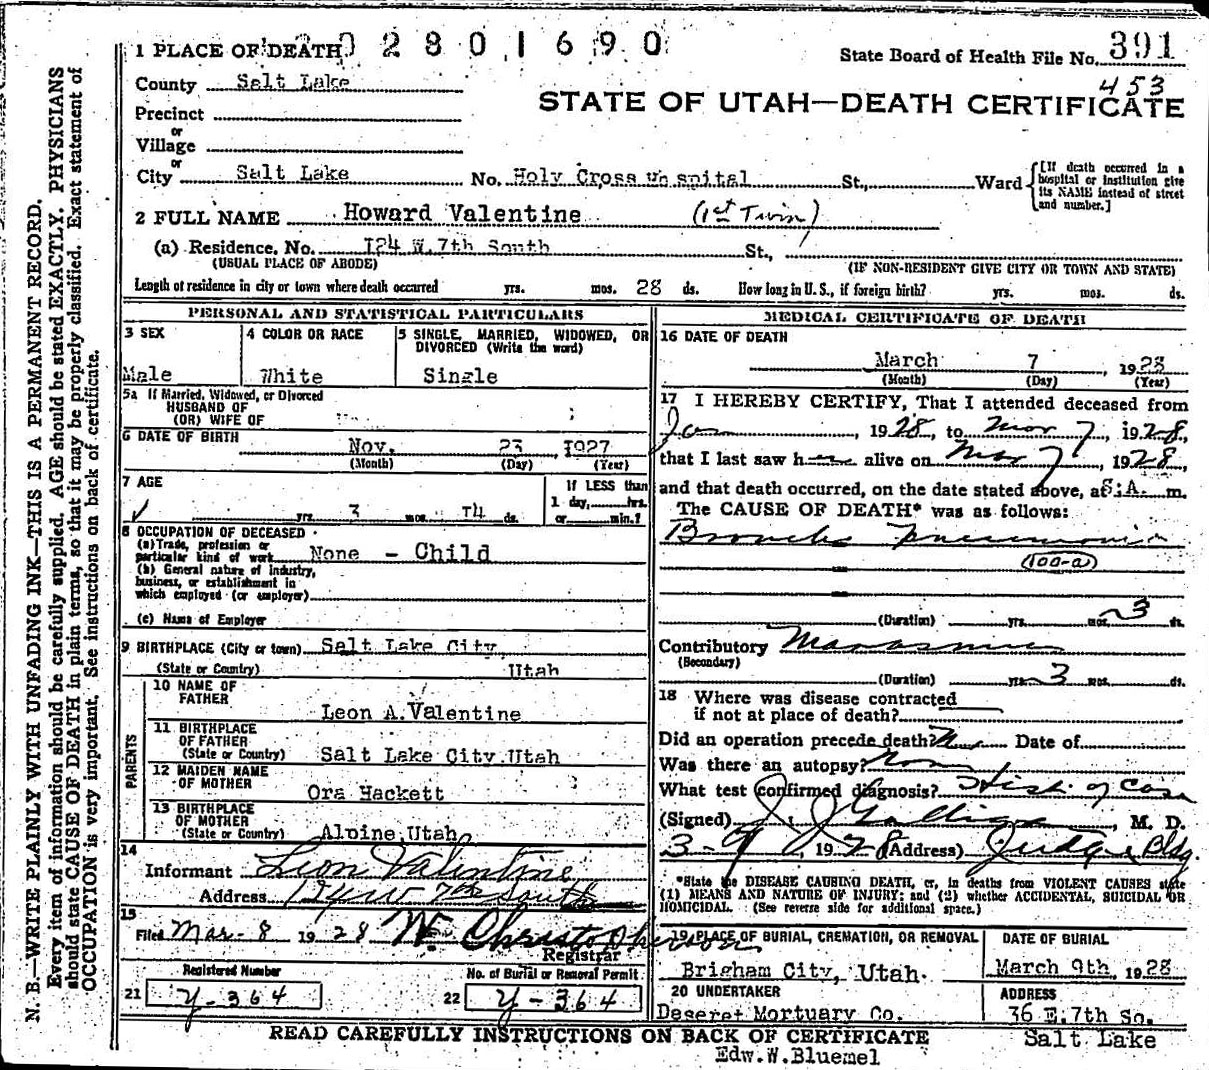 N. B.—WRITE PLAINLY WITH UNFADING INK—THIS IS A PERMANENT RECORD.
Every item of information should be carefully supplied. AGE should be stated EXACTLY. PHYSICIANS
should state CAUSE OF DEATH in plain terms, so that it may be properly classified. Exact statement of
OCCUPATION is very important. See instructions on back of certificate.
02801690
1 PLACE OF DEATH
State Board of Health File No. 391
453
County Salt Lake
STATE OF UTAH—DEATH CERTIFICATE
Precinct
or
Village
or
City Salt Lake No. Holy Cross Hospital St., Ward
[If death occurred in a
hospital or institution give
its NAME instead of street
and number.]
2 FULL NAME Howard Valentine (1st Twin)
(a) Residence. No. 124 W. 7th South St.,
(USUAL PLACE OF ABODE) (IF NON-RESIDENT GIVE CITY OR TOWN AND STATE)
Length of residence in city or town where death occurred yrs. mos. 28 ds. How long in U. S., if foreign birth? yrs. mos. ds.
PERSONAL AND STATISTICAL PARTICULARS
3 SEX
Male
4 COLOR OR RACE
White
5 SINGLE, MARRIED, WIDOWED, OR
DIVORCED (Write the word)
Single
5a If Married, Widowed, or Divorced
HUSBAND OF
(OR) WIFE OF
6 DATE OF BIRTH
Nov. 23 1927
(Month) (Day) (Year)
7 AGE
yrs. 3 mos. 14 ds.
If LESS than
1 day, hrs.
or min.?
8 OCCUPATION OF DECEASED
(a) Trade, profession or
particular kind of work None - Child
(b) General nature of industry,
business, or establishment in
which employed (or employer)
(c) Name of Employer
9 BIRTHPLACE (City or town) Salt Lake City
(State or Country) Utah
PARENTS
10 NAME OF
FATHER
Leon A. Valentine
11 BIRTHPLACE
OF FATHER
(State or Country) Salt Lake City Utah
12 MAIDEN NAME
OF MOTHER
Ora Hackett
13 BIRTHPLACE
OF MOTHER
(State or Country) Alpine, Utah
14
Informant Leon Valentine
Address 124 W 7th South
15
Filed Mar-8 1928 Wm Christopherson
Registrar
Registered Number
21 Y-364
No. of Burial or Removal Permit
22 Y-364
MEDICAL CERTIFICATE OF DEATH
16 DATE OF DEATH
March 7, 1928
(Month) (Day) (Year)
17 I HEREBY CERTIFY, That I attended deceased from
Jan, 1928, to Mar 7, 1928,
that I last saw h alive on Mar 7, 1928,
and that death occurred, on the date stated above, at A. m.
The CAUSE OF DEATH* was as follows:
Broncho Pneumonia
(100-a)
(Duration) yrs. mos. 3 ds.
Contributory Marasmus
(Secondary)
(Duration) yrs. 3 mos. ds.
18 Where was disease contracted
if not at place of death?
Did an operation precede death? No Date of
Was there an autopsy? None
What test confirmed diagnosis? Hist. of Case
(Signed) J. J. Galligan, M. D.
3-9, 1928 (Address) Judge Bldg.
*State the DISEASE CAUSING DEATH, or, in deaths from VIOLENT CAUSES state
(1) MEANS AND NATURE OF INJURY; and (2) whether ACCIDENTAL, SUICIDAL OR
HOMICIDAL. (See reverse side for additional space.)
19 PLACE OF BURIAL, CREMATION, OR REMOVAL
Brigham City, Utah.
DATE OF BURIAL
March 9th, 1928
20 UNDERTAKER
Deseret Mortuary Co.
ADDRESS
36 E. 7th So.
READ CAREFULLY INSTRUCTIONS ON BACK OF CERTIFICATE
Salt Lake
Edw. W. Bluemel